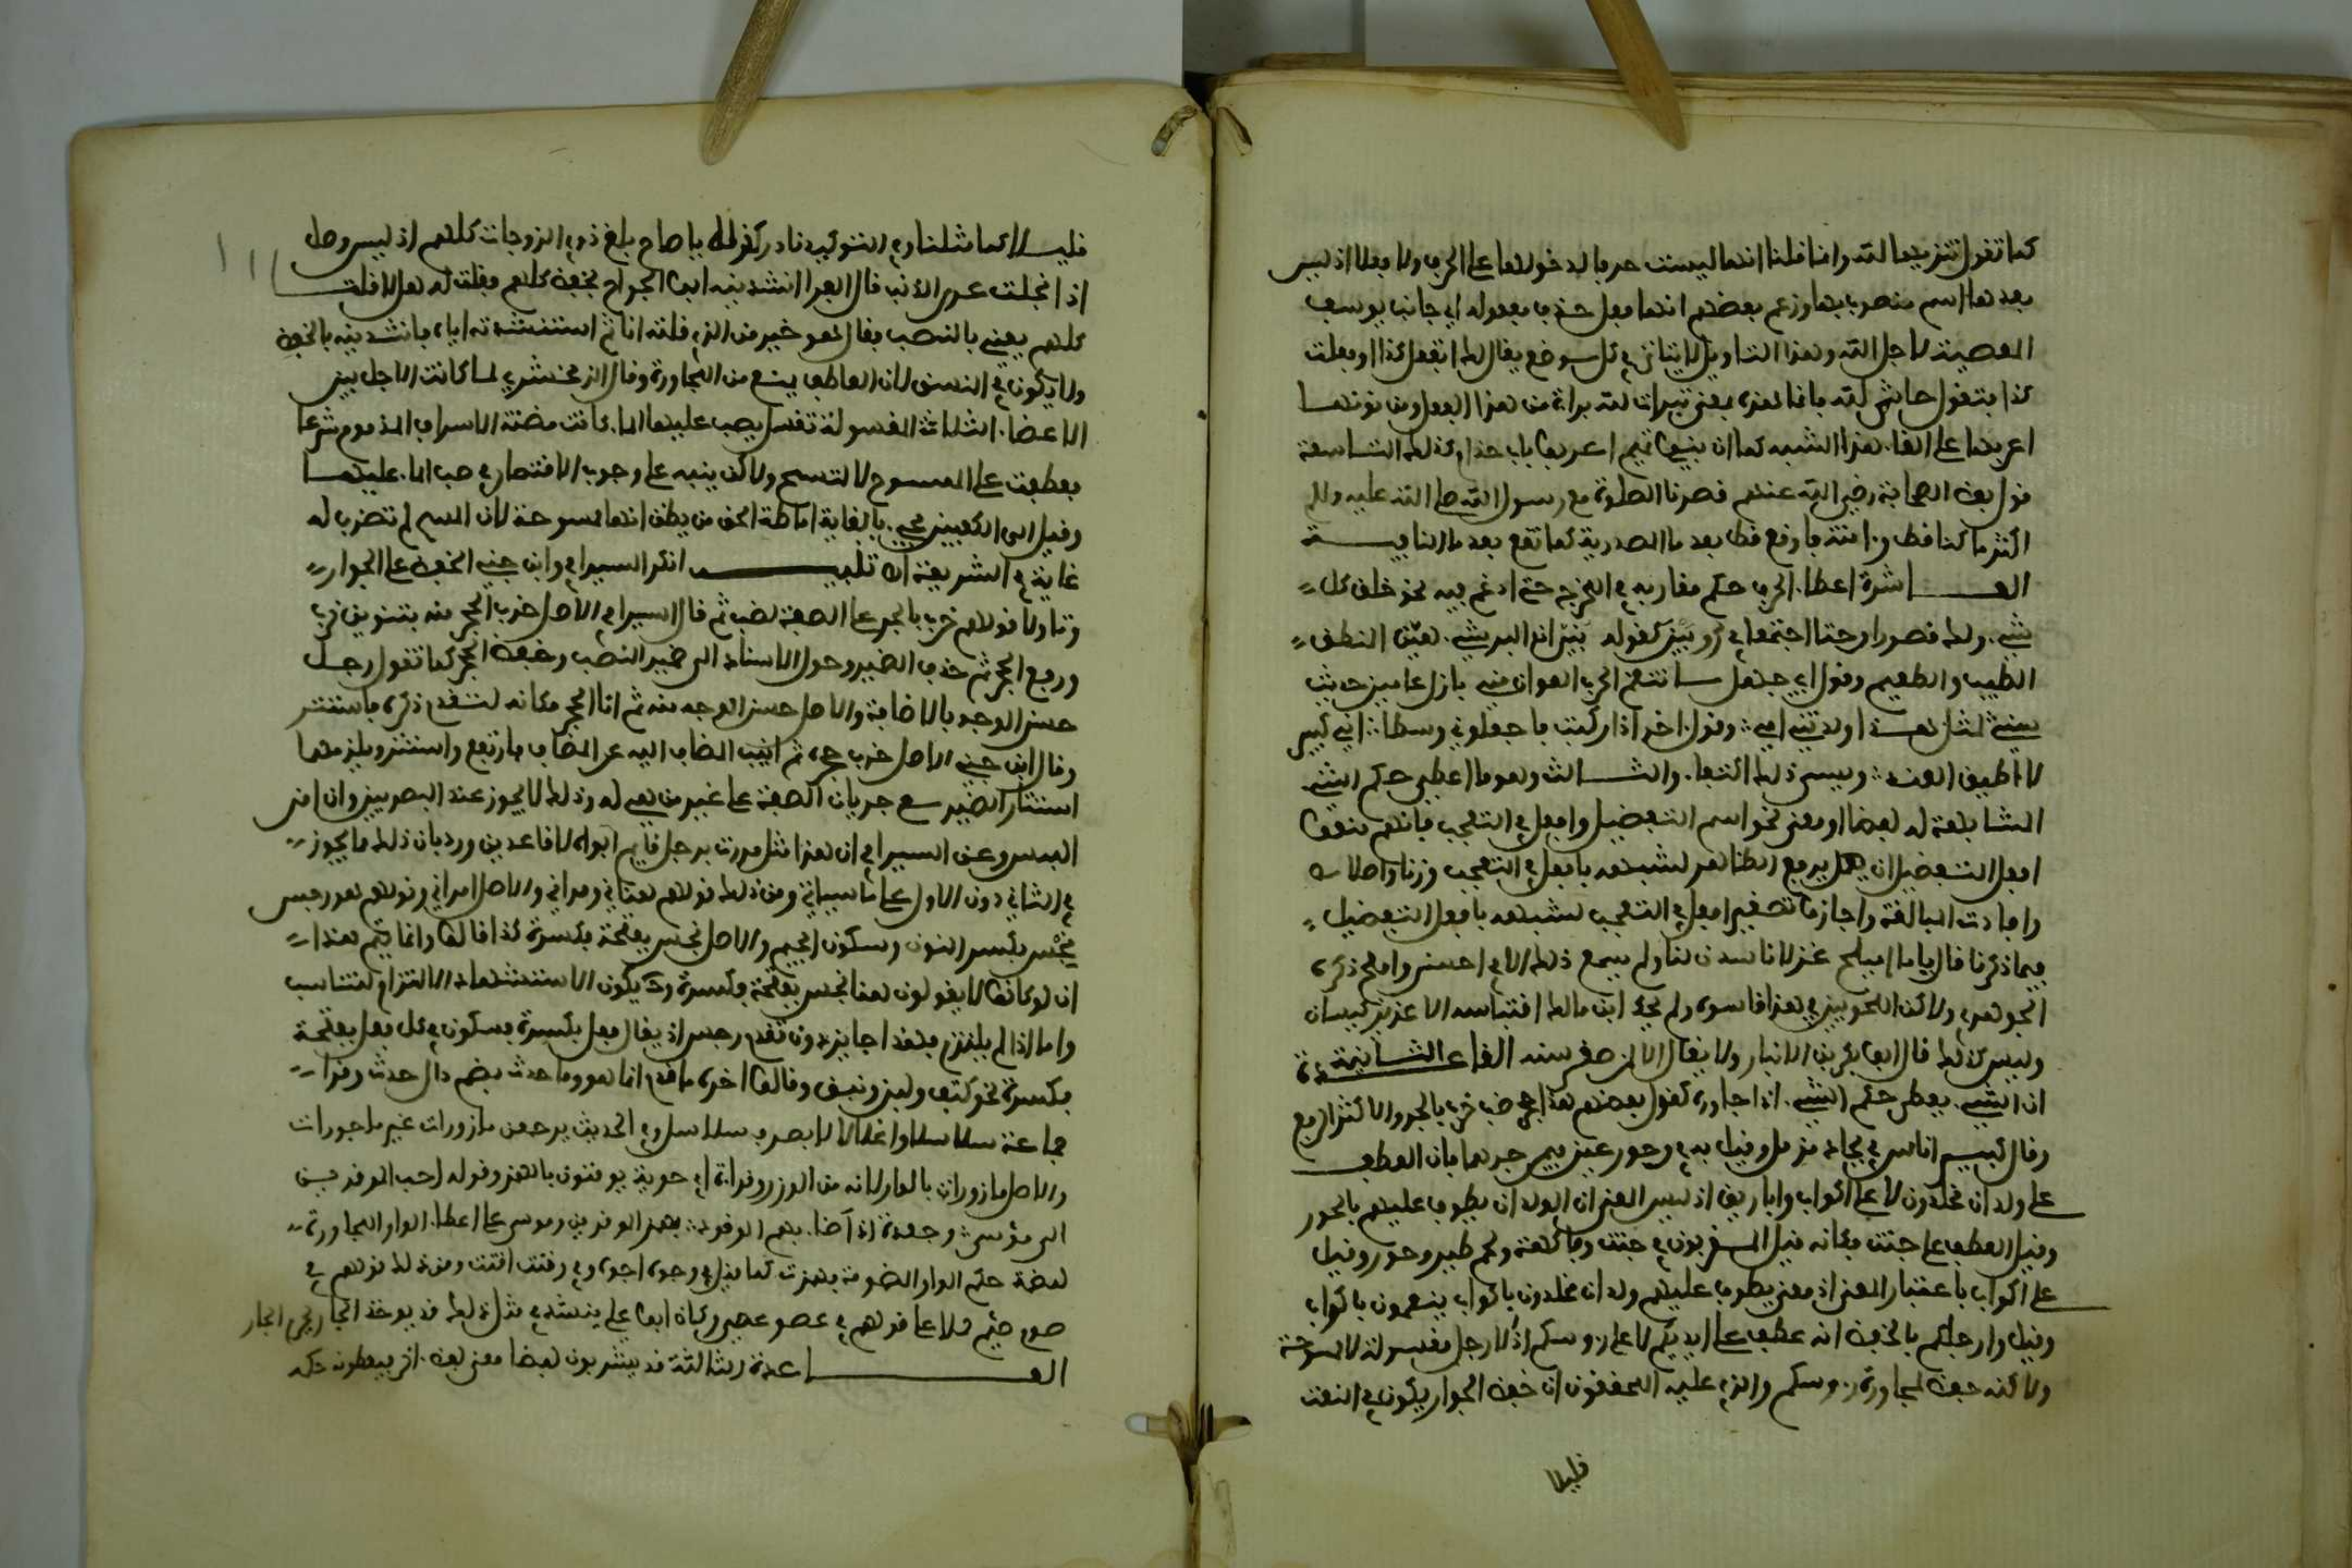 كما تقول تنزيها لله وانما قلنا انها ليست حرفا لدخولها على الحرف ولا فعلا اذ ليس
بعدها اسم منصوب بها وزعم بعضهم انها فعل حذف مفعوله اي جانب يوسف
المعصية لاجل الله وهذا التاويل لا يتاتى في كل موضع يقال لك اتفعل كذا او فعلت
كذا فتقول حاشى لله فانما هذه بمعنى تبرات لله براءة من هذا الفعل ومن نونها
اعربها على الغاء هذا الشبه كما ان بني تميم اعربوا باب حذام وكذلك التاسعة
قول بعض الصحابة رضي الله عنهم قصرنا الصلوة مع رسول الله صلى الله عليه وسلم
اكثر ما كنا قط وامنه فاوقع قط بعد ما المصدرية كما تقع بعد ما النافية
العاشرة اعطاء الحرف حكم مقاربه في المخرج حتى ادغم فيه نحو خلق كل
شيء ولك قصورا وحتى اجتمعا في رويين كقوله بني ان البر شيء هين المنطق
الطيب والطعيم وقول ابي جهل ما تنقم الحرب العوان مني بازل عامين حديث
سني لمثل هذا ولدتني امي وقول اخر اذا ركبت فاجعلوني وسطا اني كبير
لا اطيق العندا ويسمى ذلك اكفاء والثالث وهو ما اعطي حكم الشيء
المشابهة له لفظا ومعنى نحو اسم التفضيل وافعل في التعجب فانهم منعوا
افعل التفضيل ان يرفع الظاهر لشبهه بافعل في التعجب وزنا واصلا
وافادة للمبالغة واجازوا تصغير افعل في التعجب لشبهه بافعل التفضيل
فيما ذكرنا قال ياما اميلح غزلانا شدن لنا ولم يسمع ذلك الا في احسن واملح ذكره
الجوهري ولاكن النحويين في هذا قاسوه ولم يحك ابن مالك اقتياسه الا عن ابن كيسان
وليس كذلك قال ابو بكر بن الانباري ولا يقال الا لمن صغر سنه القاعدة الثانية
ان الشيء يعطى حكم الشيء اذا جاوره كقول بعضهم هذا جحر ضب خرب بالجر والاكثر الرفع
وقال كبير اناس في بجاد مزمل وقيل به في وحور عين فيمن جرهما فان العطف
على ولدان مخلدون لا على اكواب واباريق اذ ليس المعنى ان الولدان يطوف عليهم بالحور
وقيل العطف على جنت فكانه قيل المقربون في جنت وفاكهة ولحم طير وحور وقيل
على اكواب باعتبار المعنى اذ معنى يطوف عليهم ولدان مخلدون باكواب ينعمون باكواب
وقيل وارجلكم بالخفض انه عطف على ايديكم لا على رءوسكم اذ الارجل مغسولة لا ممسوحة
ولاكنه خفض لمجاورة رءوسكم والذي عليه المحققون ان خفض الجوار يكون في النعت
قليلا
قليلا كما مثلنا وفي التوكيد نادرا كقوله يا صاح بلغ ذوي الزوجات كلهم ان ليس وصل
اذا انحلت عرى الذنب قال الفراء انشدنيه ابو الجراح بخفض كلهم فقلت له هلا قلت
كلهم يعني بالنصب فقال هو خير من الذي قلته انا ثم استنشدته اياه فانشدنيه بالخفض
ولا يكون في النسق لان العاطف يمنع من التجاور وقال الزمخشري لما كانت الارجل بين
الاعضاء الثلاثة المغسولة تغسل بصب عليها الماء كانت مضنة الاسراف المذموم شرعا
فعطفت على الممسوح لا لتمسح ولاكن ينبه على وجوب الاقتصار في صب الماء عليها
وقيل الى الكعبين فجيء بالغاية اماطة لظن من يظن انها ممسوحة لان المسح لم تضرب له
غاية في الشريعة اه تنبيه انكر السيرافي وابن جني الخفض على الجوار
وتاولا قولهم خرب بالجر على الصفة لضب ثم قال السيرافي الاصل خرب الجحر منه بتنوين خرب
ورفع الجحر ثم حذف الضمير وحول الاسناد الى ضمير الضب وخفض الجحر كما تقول رجل
حسن الوجه بالاضافة والاصل حسن الوجه منه ثم اتى الجحر مكانه لتقدم ذكره فاستتر
وقال ابن جني الاصل خرب جحره ثم انيب المضاف اليه عن المضاف فارتفع واستتر ويلزمهما
استتار الضمير مع جريان الصفة على غير من هي له وذلك لا يجوز عند البصريين وان امن
اللبس وعن السيرافي ان هذا مثل مررت برجل قائم ابواه لا قاعدين ورد بان ذلك ما يجوز
في الثاني دون الاول على ما سياتي ومن ذلك قولهم هناني ومراني والاصل امراني وقولهم هو رجس
نجس بكسر النون وسكون الجيم والاصل نجس بفتحة فكسرة كذا قالوا وانما يتم هذا
ان لو كانوا لا يقولون هنا نجس بفتحة وكسرة وح يكون الاستشهاد الالتزام للتناسب
واما اذا لم يلتزم فهذا جايز دون تقدم رجس اذ يقال فعل بكسرة فسكون في كل فعل بفتحة
فكسرة نحو كتف ولبن ونبق وقالوا اخذه ما قدم انما هو وما حدث بضم دال حدث وقرا
جماعة سلاسلا واغلالا بصرف سلاسل وفي الحديث يرجعن مازورات غير ماجورات
والاصل مازورات بالواو لانه من الوزر وقراءة ابي حيوة يوقنون بالهمز وقوله احب الموقدين
الى مؤسى وجعدة اذ اضاء بهم الوقود بهمز الموقدين وموسى على اعطاء الواو المجاورة
لضمة حكم الواو المضمومة بهمزت كما قيل في وجوه اجوه وفي وقتت اقتت ومن ذلك قولهم في
صوم صيم حملا على قولهم في عصو عصي وكان ابو علي ينشد في مثل ذلك قد يوخذ الجار بجرم الجار
القاعدة الثالثة قد يشربون لفظا معنى لفظ اخر فيعطونه حكمه